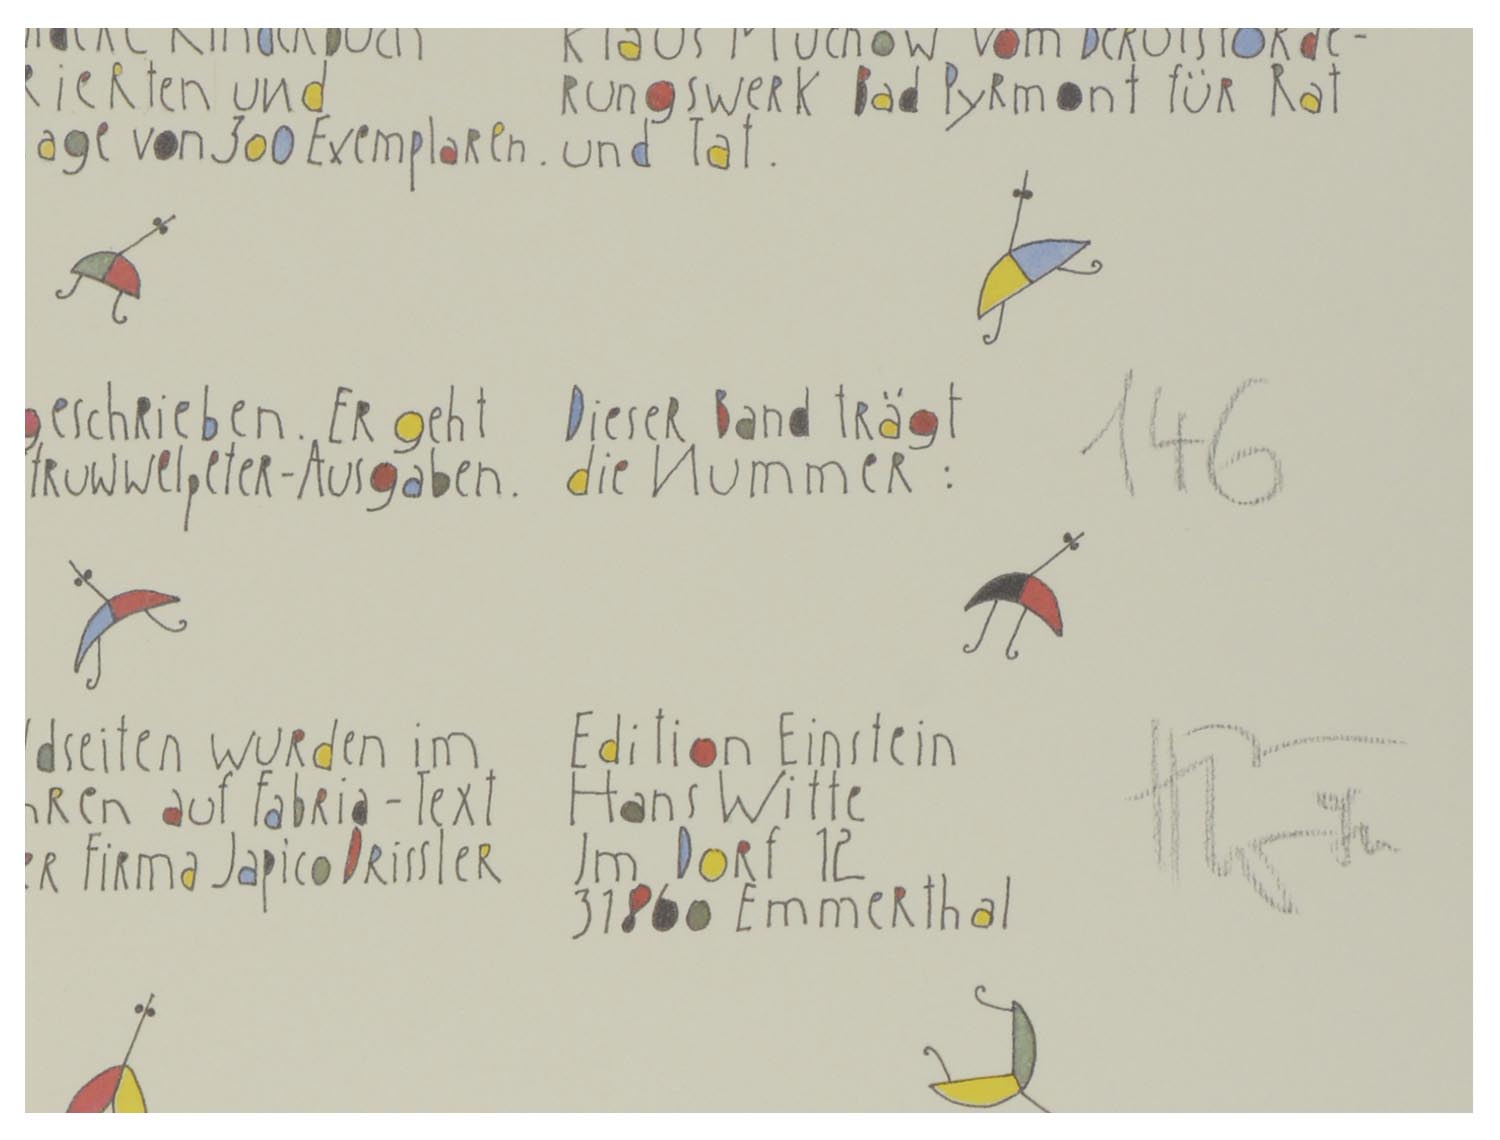 Kinderbuch
RieRten und
age von 300 ExemplaRen.
Klaus Muchow vom BeRufsföRde-
RungsweRK Bad PyRmont für Rat
und Tat.
geschRieben. ER geht
truwwelpeteR-Ausgaben.
DieseR Band trägt
die NummeR:
146
dseiten wuRden im
hRen auf Fabria-Text
er FiRma Japico DRissleR
Edition Einstein
Hans Witte
Im DoRf 12
31860 EmmeRthal